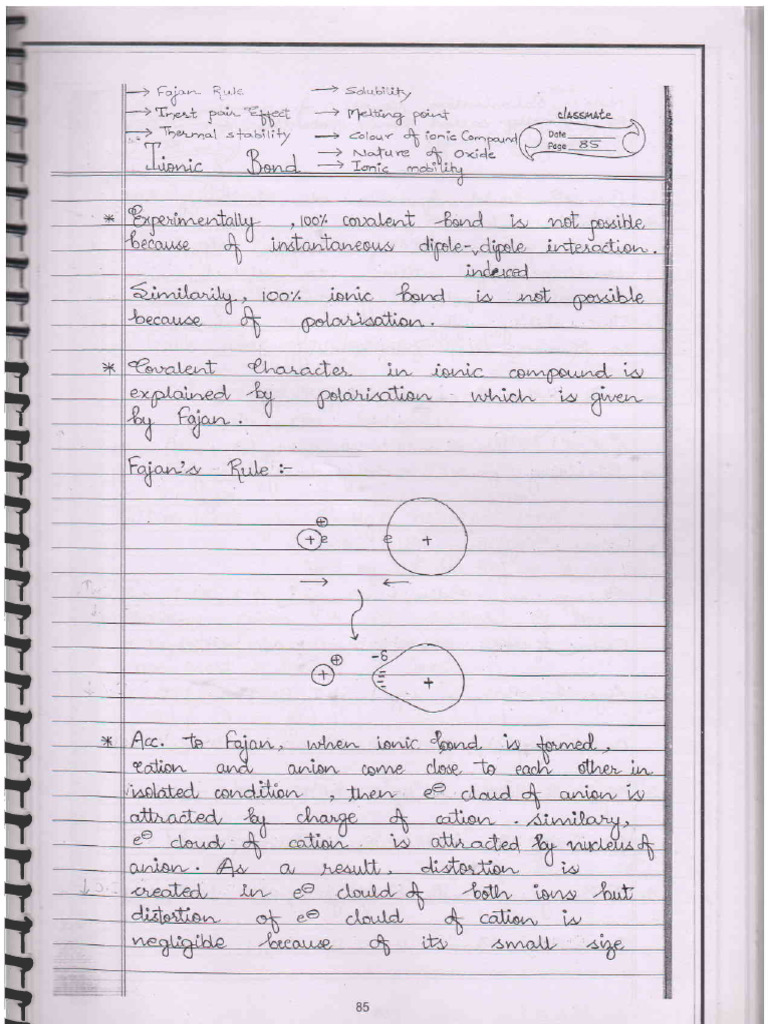 → Fajan Rule → Solubility
→ Inert pair Effect → Melting point
→ Thermal stability → Colour of ionic Compound
→ Nature of Oxide
→ Ionic mobility
classmate
Date
Page 85
Iionic Bond
* Experimentally, 100% covalent bond is not possible
because of instantaneous dipole-, dipole interaction.
induced
Similarily, 100% ionic bond is not possible
because of polarisation.
* Covalent Character in ionic compound is
explained by polarisation which is given
by Fajan.
Fajan's Rule :-
⊕
+ e e +
→ ←
⊕ -δ
+ +
* Acc. to Fajan, when ionic bond is formed,
cation and anion come close to each other in
isolated condition, then e⊖ cloud of anion is
attracted by charge of cation. similary,
e⊖ cloud of cation is attracted by nucleus of
anion. As a result, distortion is
created in e⊖ clould of both ions but
distortion of e⊖ clould of cation is
negligible because of its small size
85